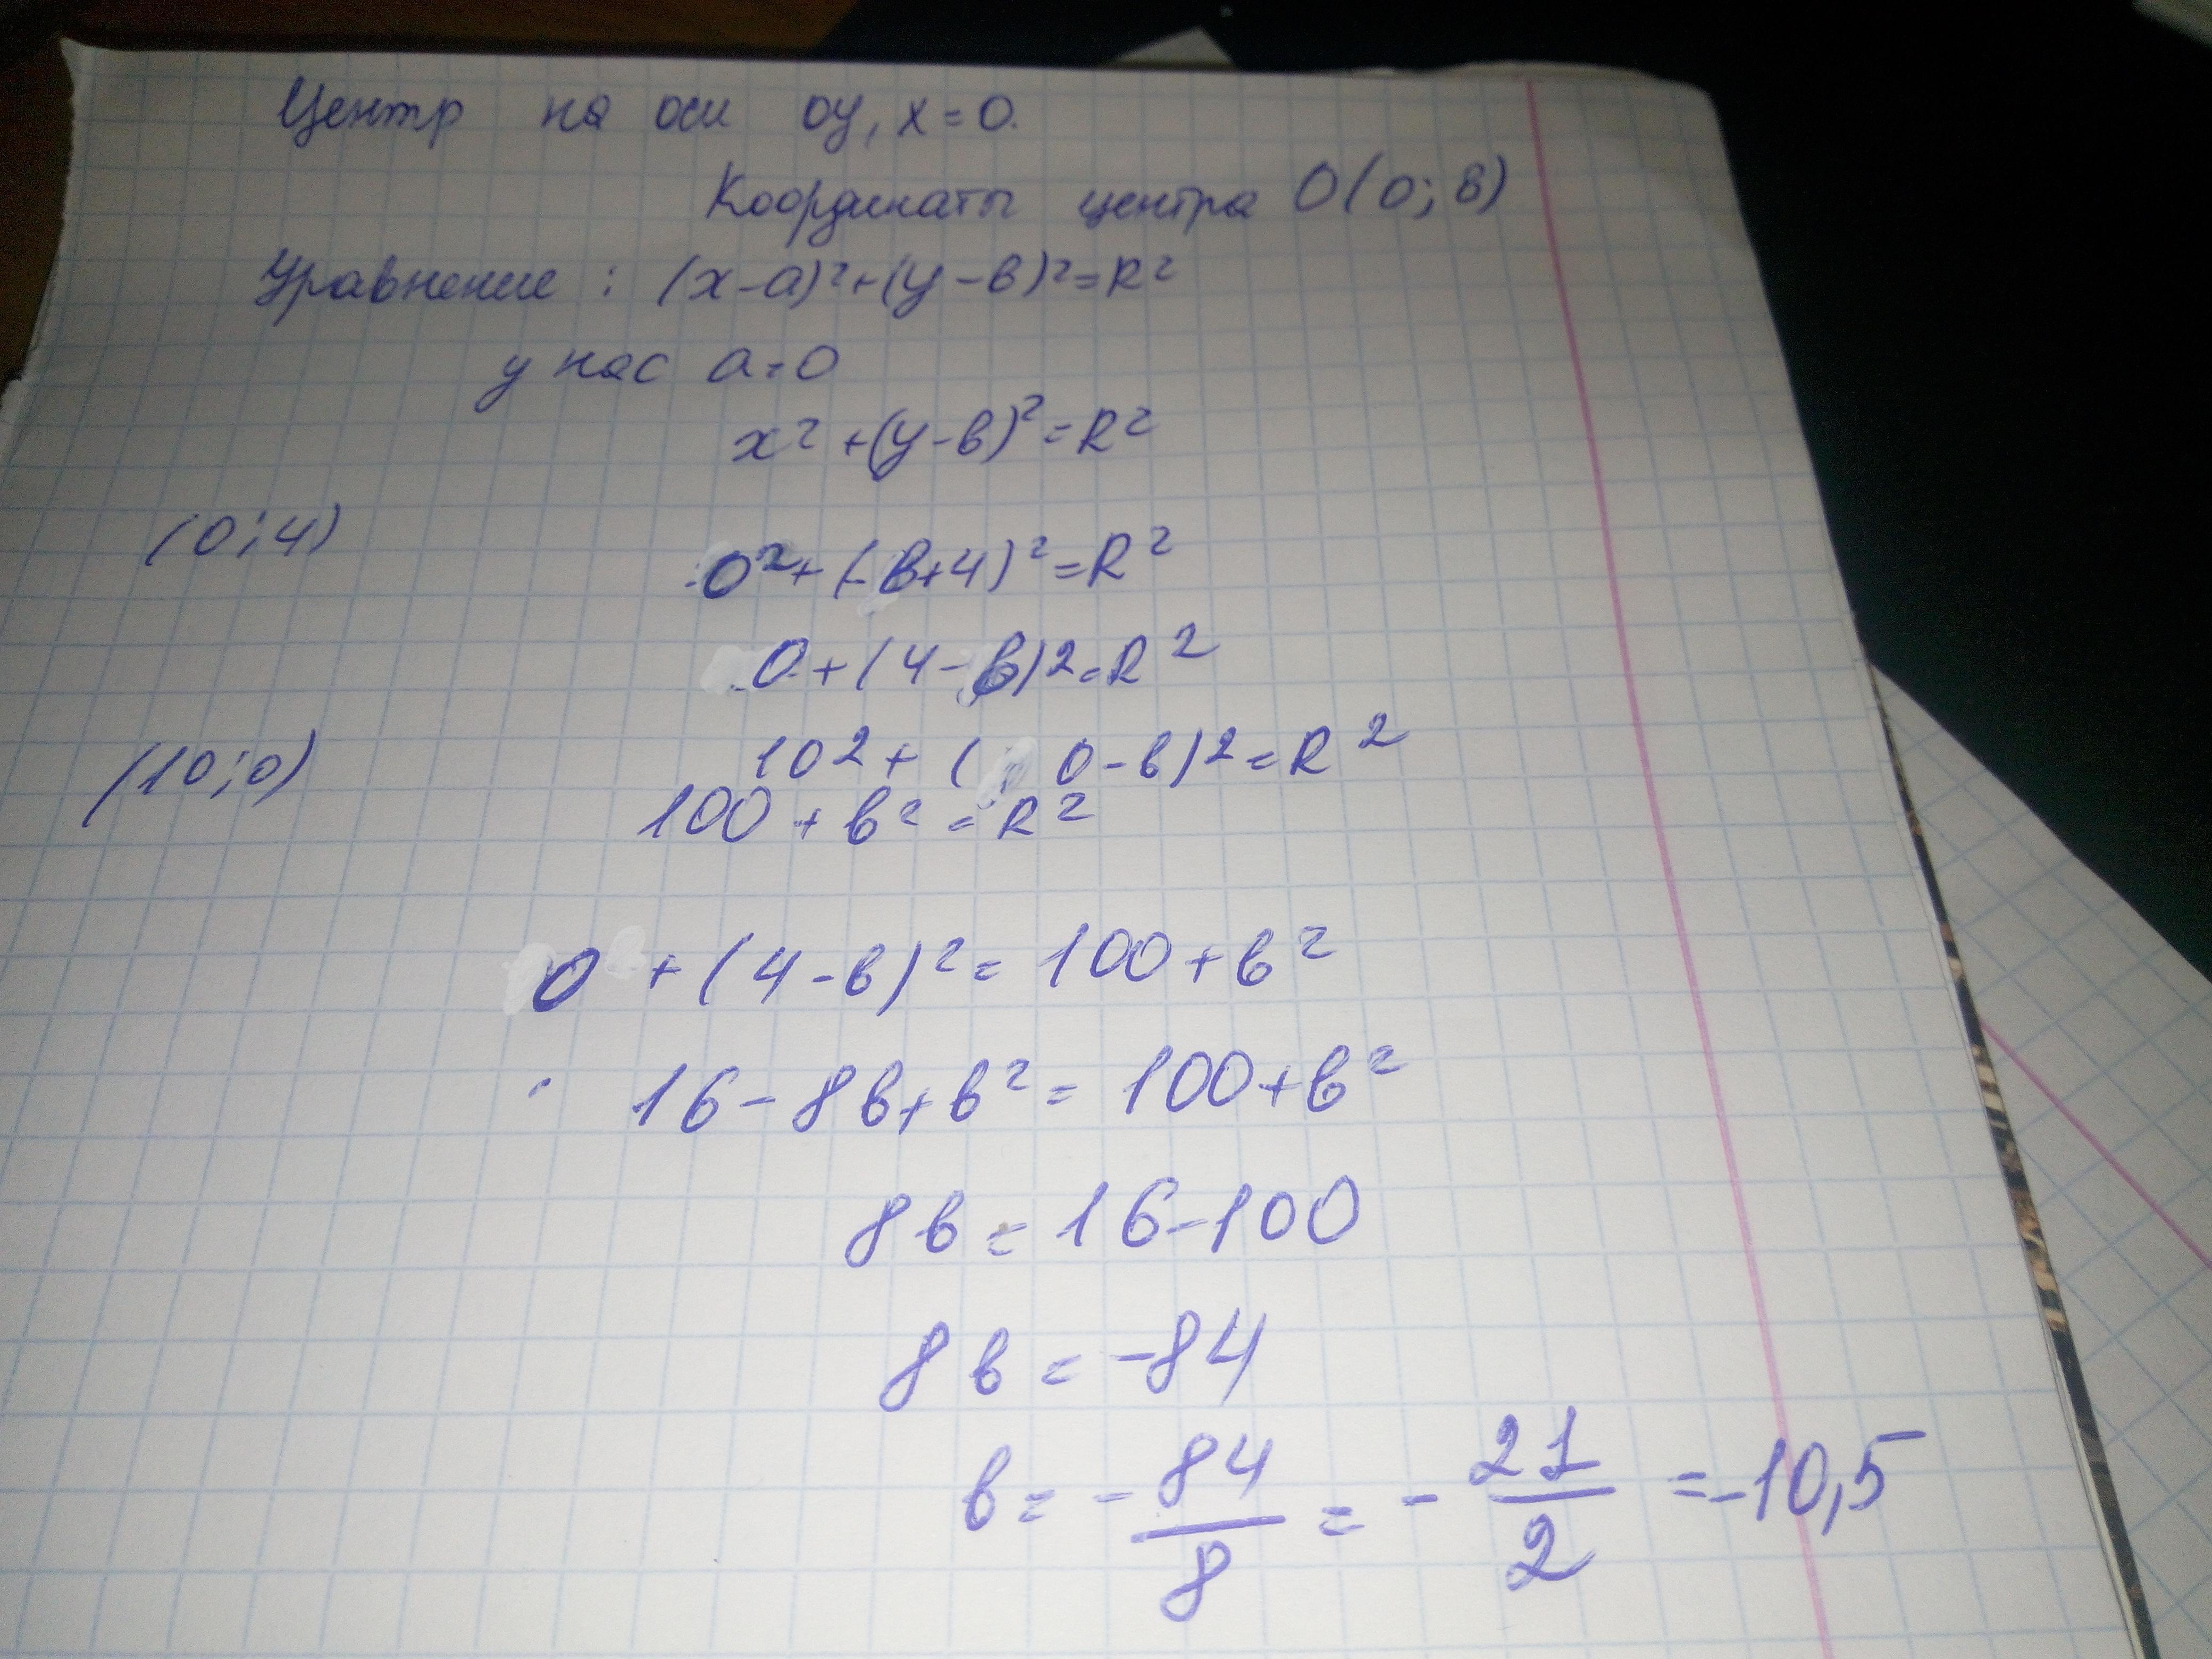 Центр на оси оу, x=0.
Координаты центра O(0; в)
Уравнение : (x-a)²+(y-в)²=R²
у нас a=0
x²+(y-в)²=R²
(0;4)
0²+(-в+4)²=R²
0+(4-в)2=R²
(10;0)
10²+(0-в)2=R²
100+в²=R²
0+(4-в)²=100+в²
16-8в+в²=100+в²
8в=16-100
8в=-84
в=-84/8=-21/2=-10,5